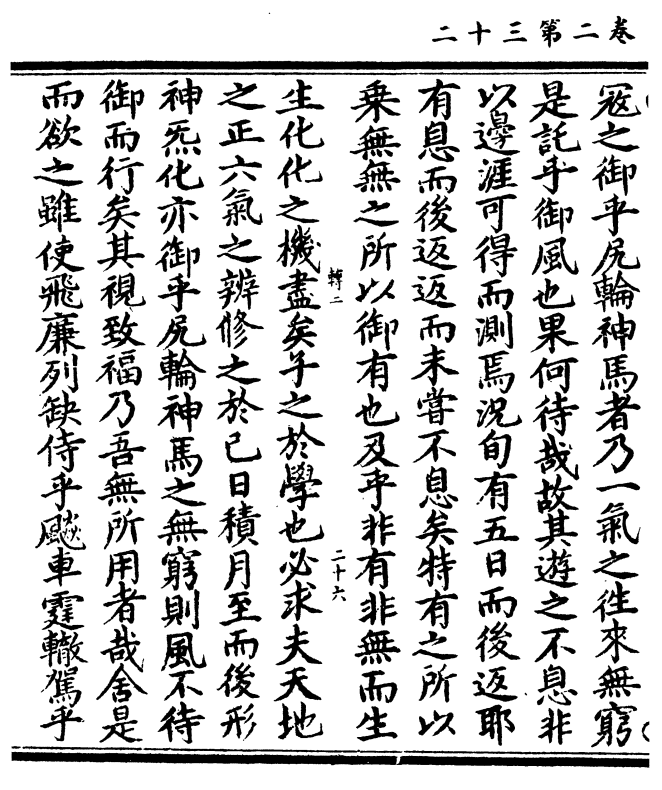 卷二第三十二
寇之御乎尻輪神馬者乃一氣之徃來無窮
是託乎御風也果何待哉故其遊之不息非
以邊涯可得而測焉況旬有五日而後返耶
有息而後返返而未甞不息矣特有之所以
乗無無之所以御有也及乎非有非無而生
轉二
二十六
生化化之機盡矣子之於學也必求夫天地
之正六氣之辨修之於已日積月至而後形
神炁化亦御乎尻輪神馬之無窮則風不待
御而行矣其視致福乃吾無所用者哉舍是
而欲之雖使飛廉列缺侍乎飈車霆轍駕乎